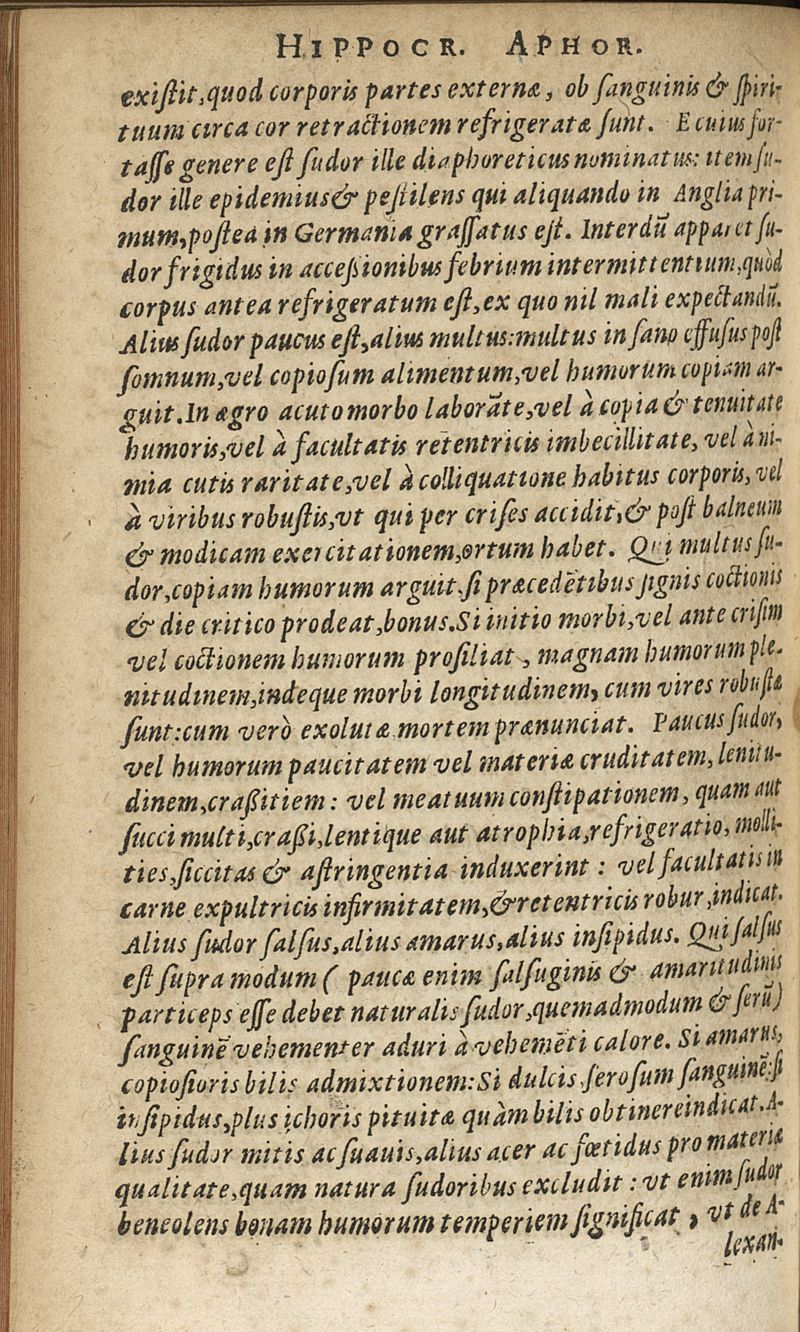 HIPPOCR. APHOR.
exiſtit, quod corporis partes externæ, ob ſanguinis & ſpiri-
tuum circa cor retractionem refrigeratæ ſunt. E cuius for-
taſſe genere eſt ſudor ille diaphoreticus nominatus: item ſu-
dor ille epidemius & peſtilens qui aliquando in Anglia pri-
mum, poſtea in Germania graſſatus eſt. Interdũ apparet ſu-
dor frigidus in acceßionibus febrium intermittentium, quòd
corpus antea refrigeratum eſt, ex quo nil mali expectandũ.
Alius ſudor paucus eſt, alius multus: multus in ſano effuſus poſt
ſomnum, vel copioſum alimentum, vel humorum copiam ar-
guit. In ægro acuto morbo laborãte, vel à copia & tenuitate
humoris, vel à facultatis retentricis imbecillitate, vel à ni-
mia cutis raritate, vel à colliquatione habitus corporis, vel
à viribus robuſtis, vt qui per criſes accidit, & poſt balneum
& modicam exercitationem, ortum habet. Qui multus ſu-
dor, copiam humorum arguit, ſi præcedẽtibus ſignis coctionis
& die critico prodeat, bonus. Si initio morbi, vel ante criſim
vel coctionem humorum proſiliat, magnam humorum ple-
nitudinem, indeque morbi longitudinem, cum vires robuſtæ
ſunt: cum verò exolutæ mortem prænunciat. Paucus ſudor,
vel humorum paucitatem vel materiæ cruditatem, lenitu-
dinem, craßitiem: vel meatuum conſtipationem, quam aut
ſucci multi, craßi, lentique aut atrophia, refrigeratio, molli-
ties, ſiccitas & aſtringentia induxerint: vel facultatis in
carne expultricis infirmitatem, & retentricis robur, indicat.
Alius ſudor ſalſus, alius amarus, alius inſipidus. Qui ſalſus
eſt ſupra modum ( paucæ enim ſalſuginis & amaritudinis
particeps eſſe debet naturalis ſudor, quemadmodum & ſerũ)
ſanguinẽ vehementer aduri à vehemẽti calore. Si amarus,
copioſioris bilis admixtionem: Si dulcis, ſeroſum ſanguinẽ: ſi
inſipidus, plus ichoris pituitæ quàm bilis obtinere indicat. A-
lius ſudor mitis ac ſuauis, alius acer ac fœtidus pro materiæ
qualitate, quam natura ſudoribus excludit: vt enim ſudor
beneolens bonam humorum temperiem ſignificat, vt de A-
lexan-